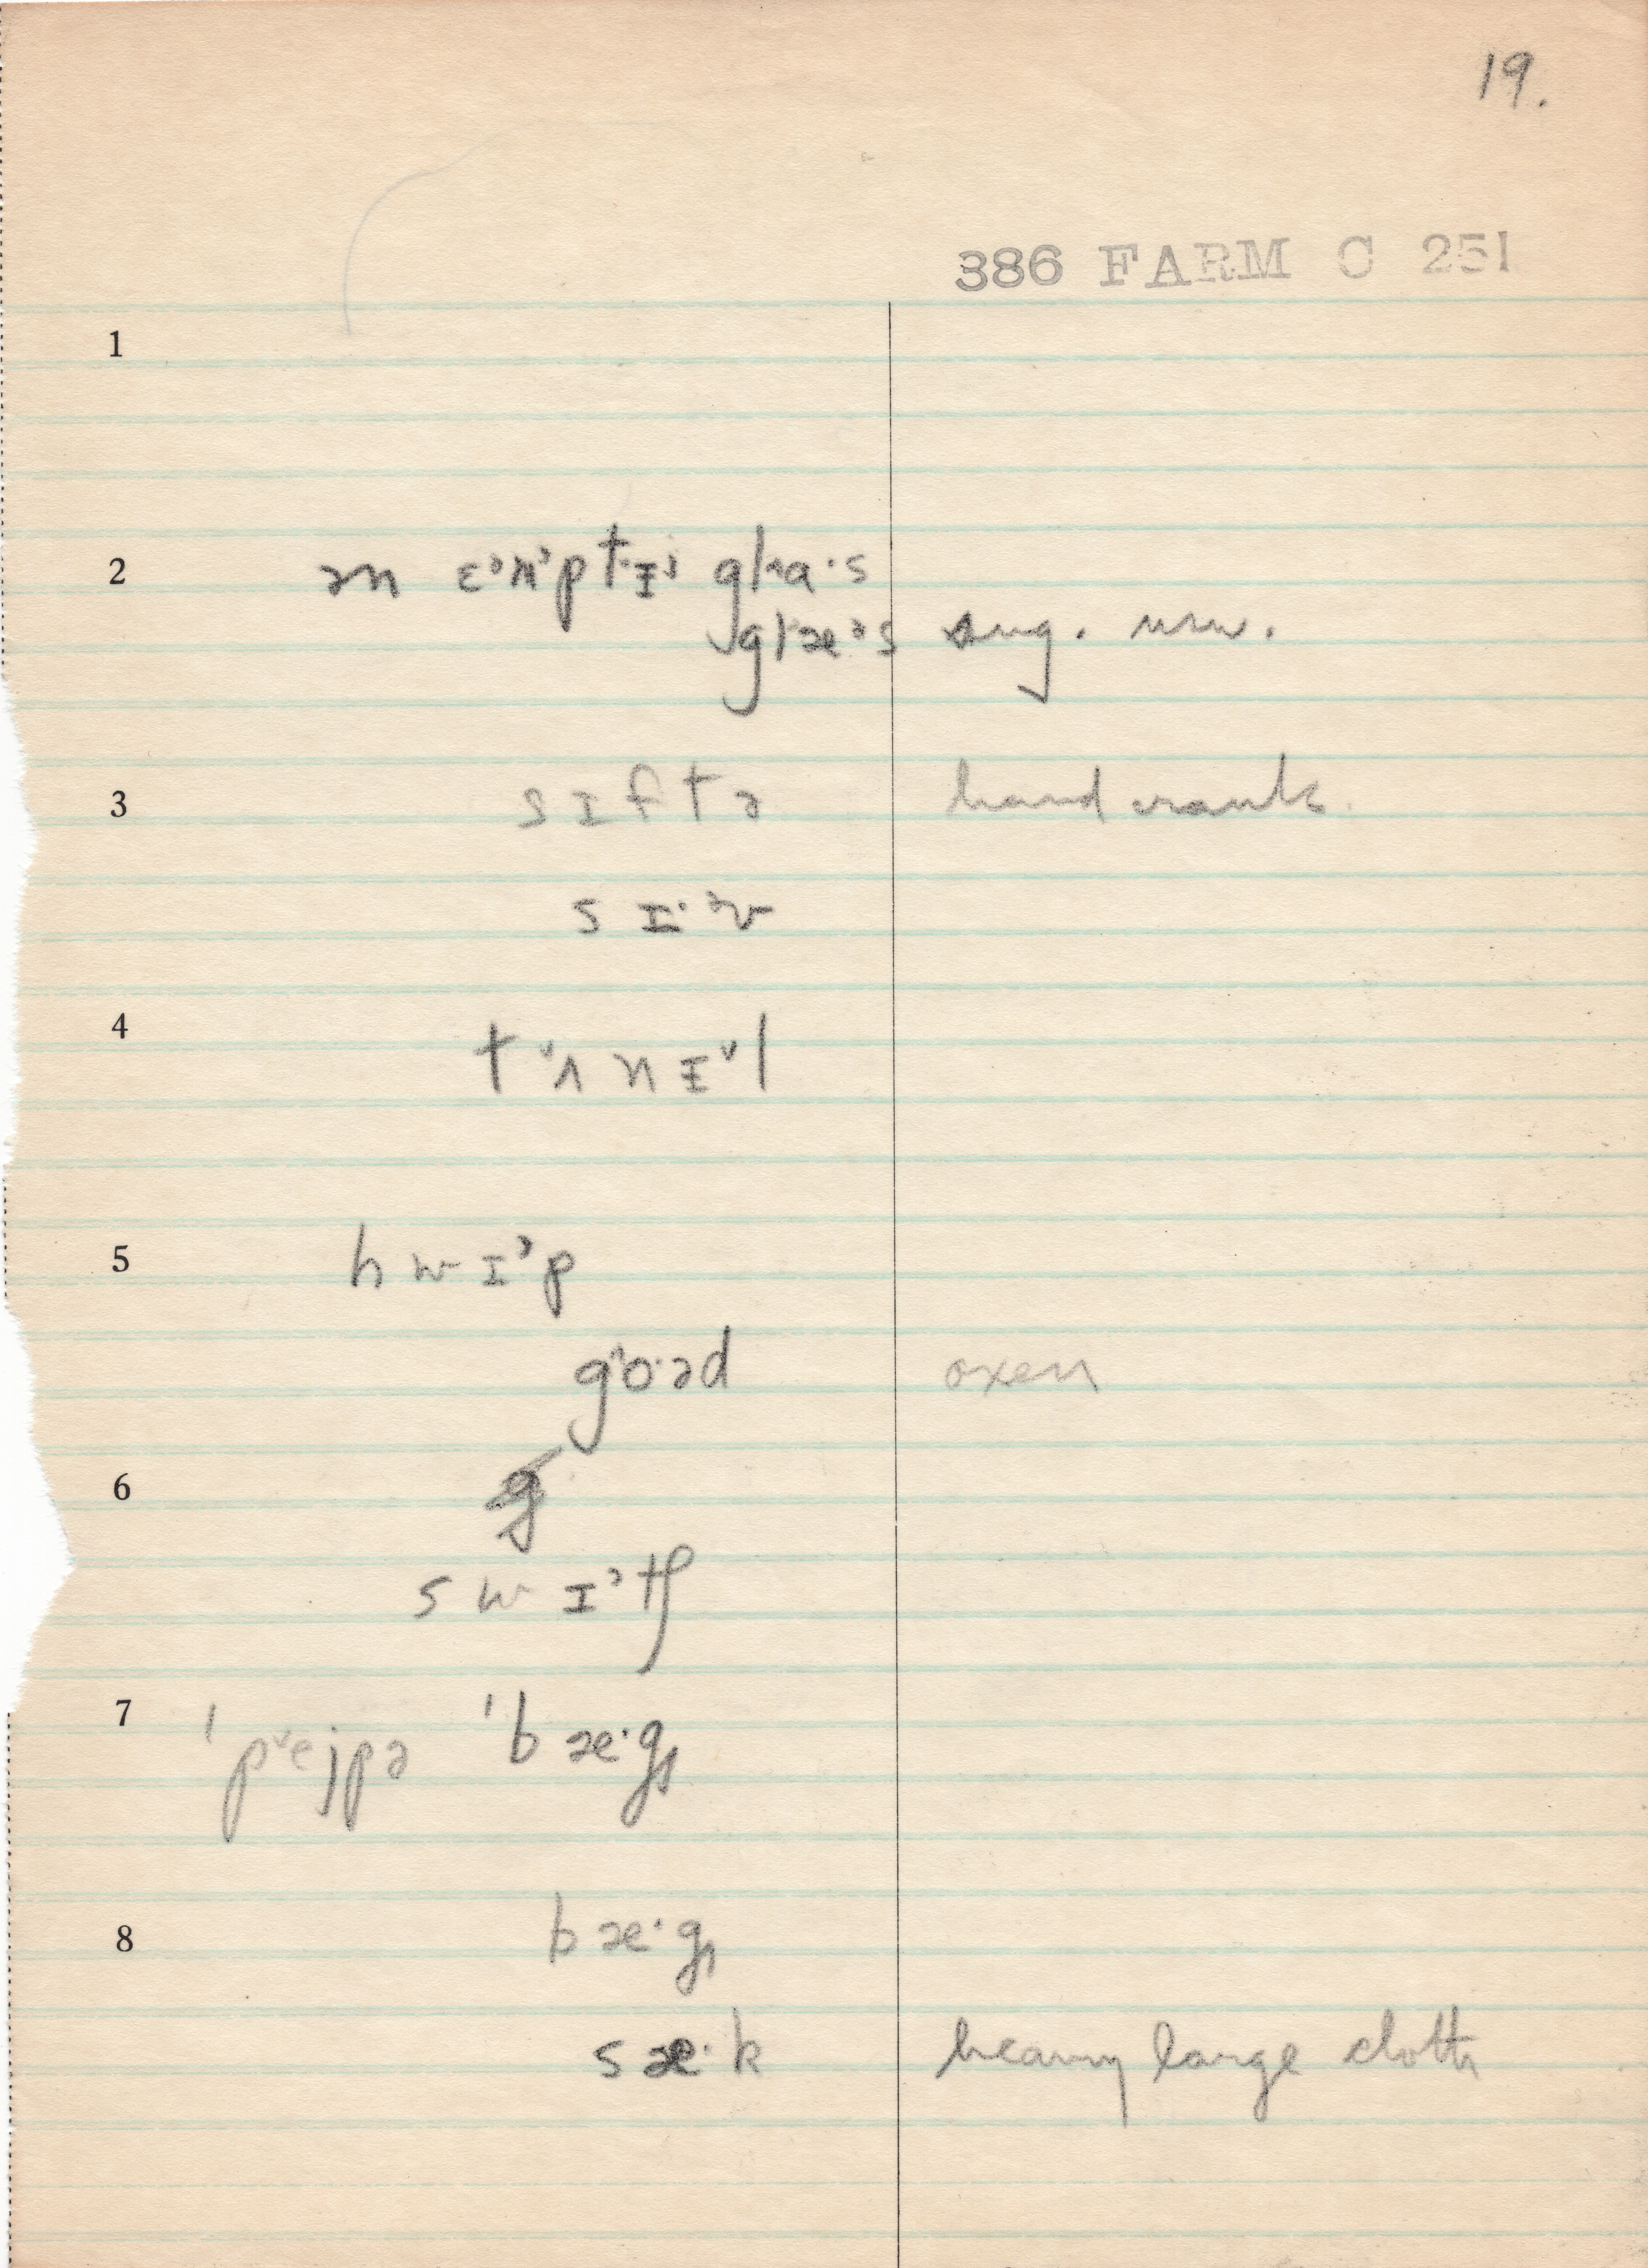 19.
386 FARM C 251
1
2 ən ɛ˒m˒ptɪ˒i glaˑs
glæ˒s sug. usu.
3 sɪftə hand crank.
sɪˑᵊv
4 t˅ʌnɪ˅l
5 hwɪ˒p
go·əd oxen
6
swɪ˒tʃ
7 ˈp˅ejpə ˈbæ·g
8 bæ·g
sæ·k heavy large cloth